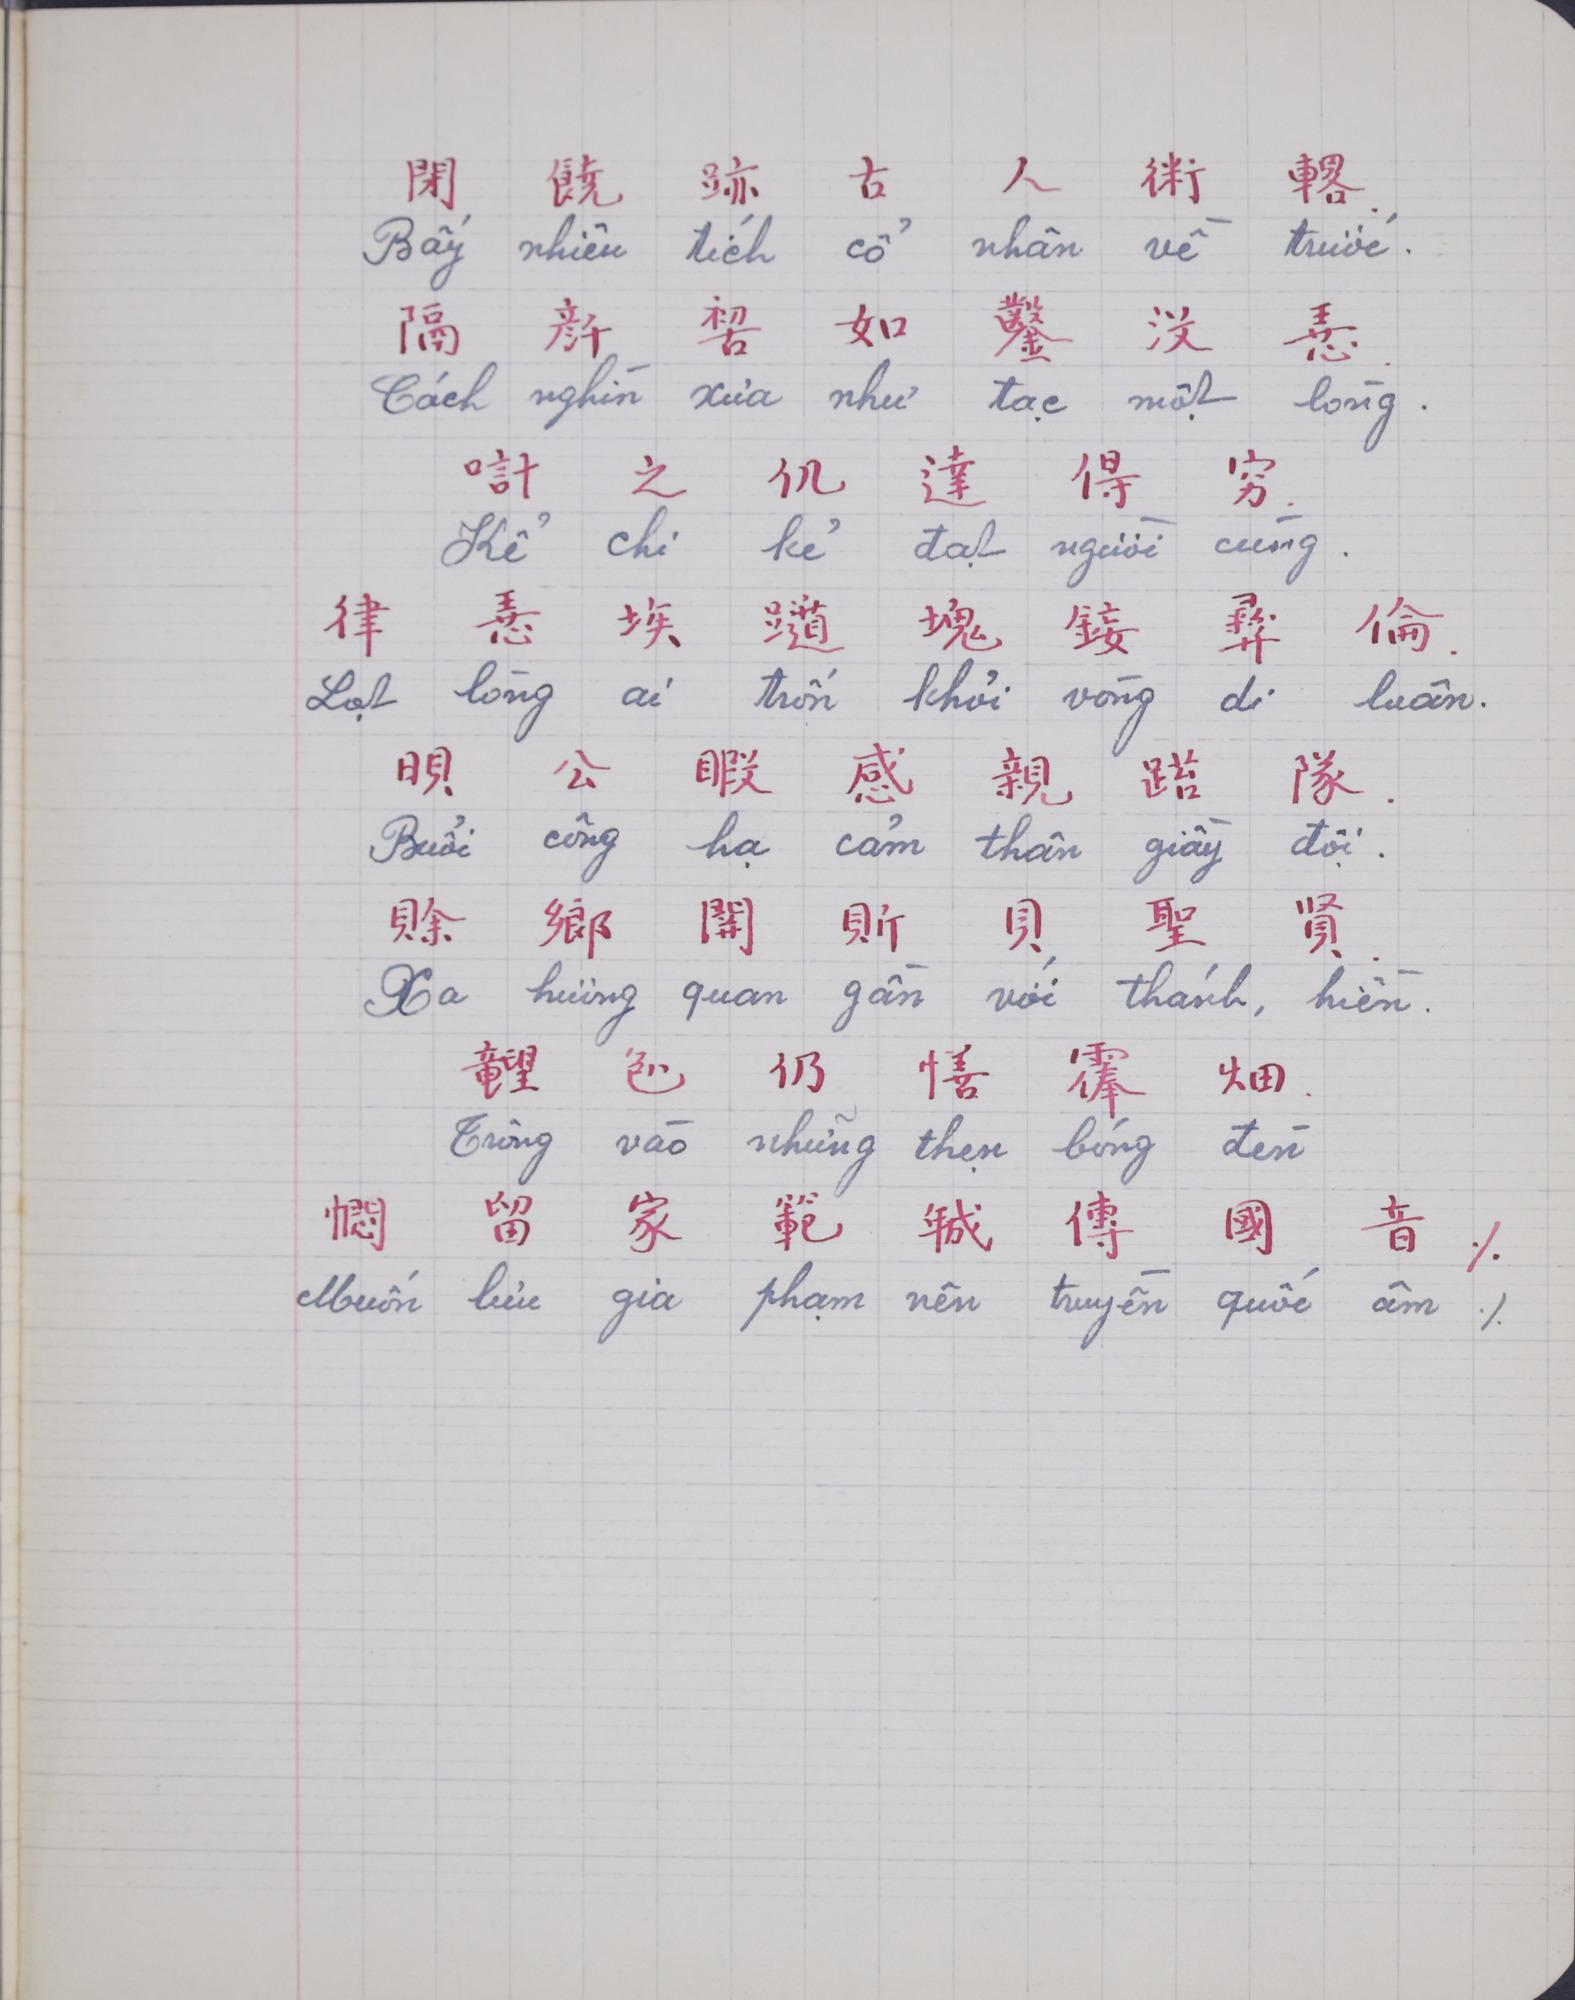 閉 饒 跡 古 人 術 轾.
Bấy nhiêu tích cổ nhân về trước.
隔 𠦳 𠸗 如 鑿 沒 𢚸.
Cách nghìn xưa như tạc một lòng.
𠸥 之 仉 達 得 穷.
Kể chi kẻ đạt người cùng.
律 𢚸 埃 𨇒 塊 𨦩 彞 倫.
Lọt lòng ai trốn khỏi vòng di luân.
𣇜 公 暇 感 親 𨃐 隊.
Buổi công hạ cảm thân giầy đội.
賒 鄉 關 𧵆 貝 聖 賢.
Xa hương quan gần với thánh, hiền.
𥊀 𠓨 仍 𢢆 䨜 畑.
Trông vào những thẹn bóng đèn
𢣧 留 家 範 𢧚 傳 國 音 ٪.
Muốn lưu gia phạm nên truyền quốc âm ٪.